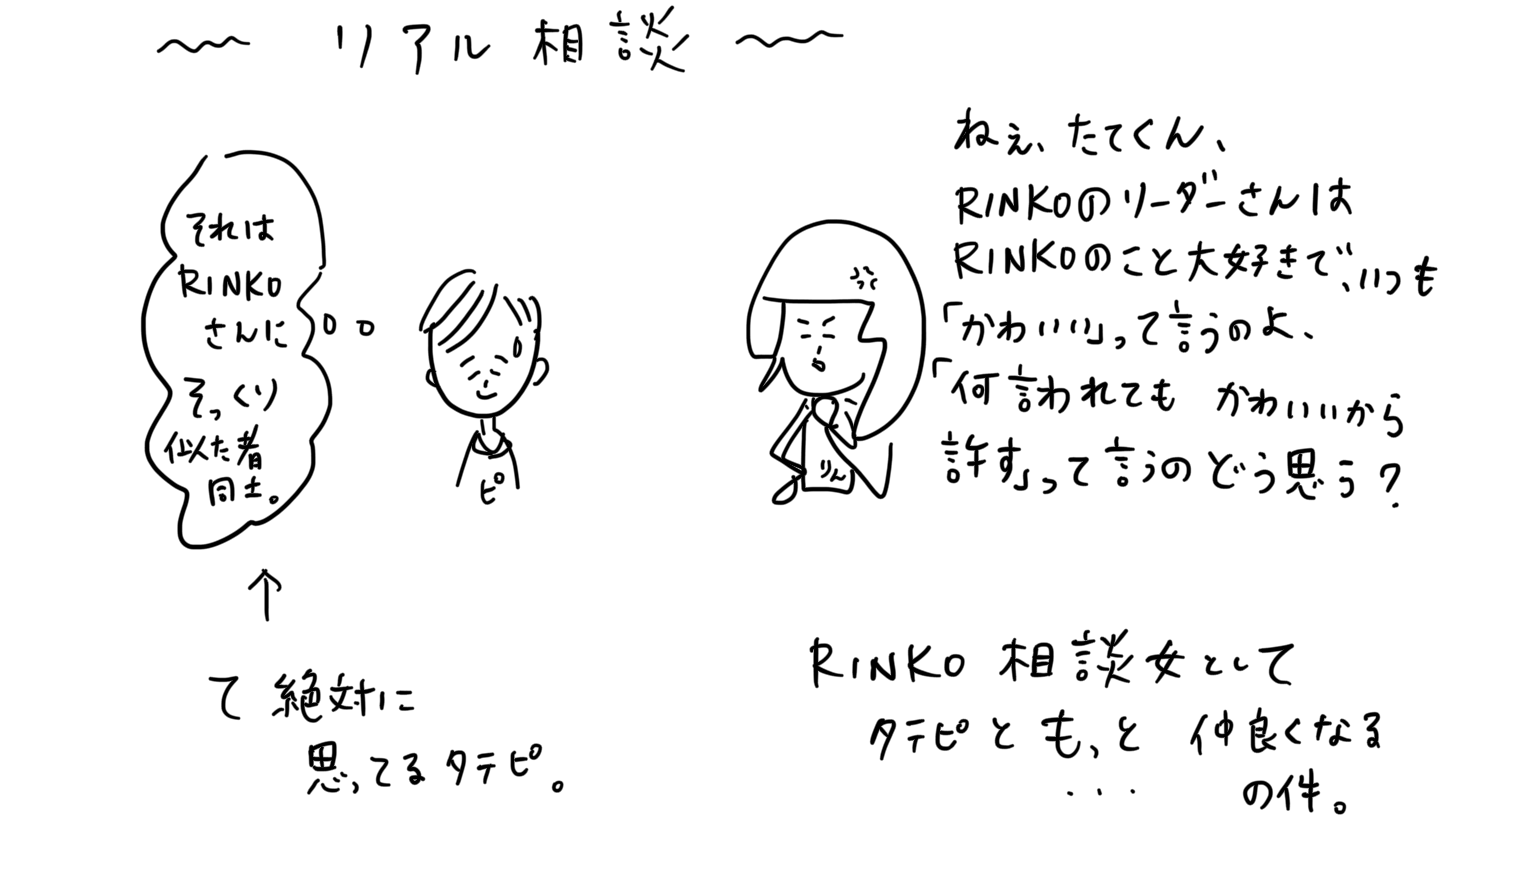 リアル相談
ねぇ、たてくん、
RINKOのリーダーさんは
RINKOのこと大好きで、いつも
「かわいい」って言うのよ、
「何言われても かわいいから
許す」って言うのどう思う?
りん
それは
RINKO
さんに
そっくり
似た者
同士。
ピ
↑
て 絶対に
思ってるタテピ。
RINKO 相談女として
タテピともっと 仲良くなる
... の件。